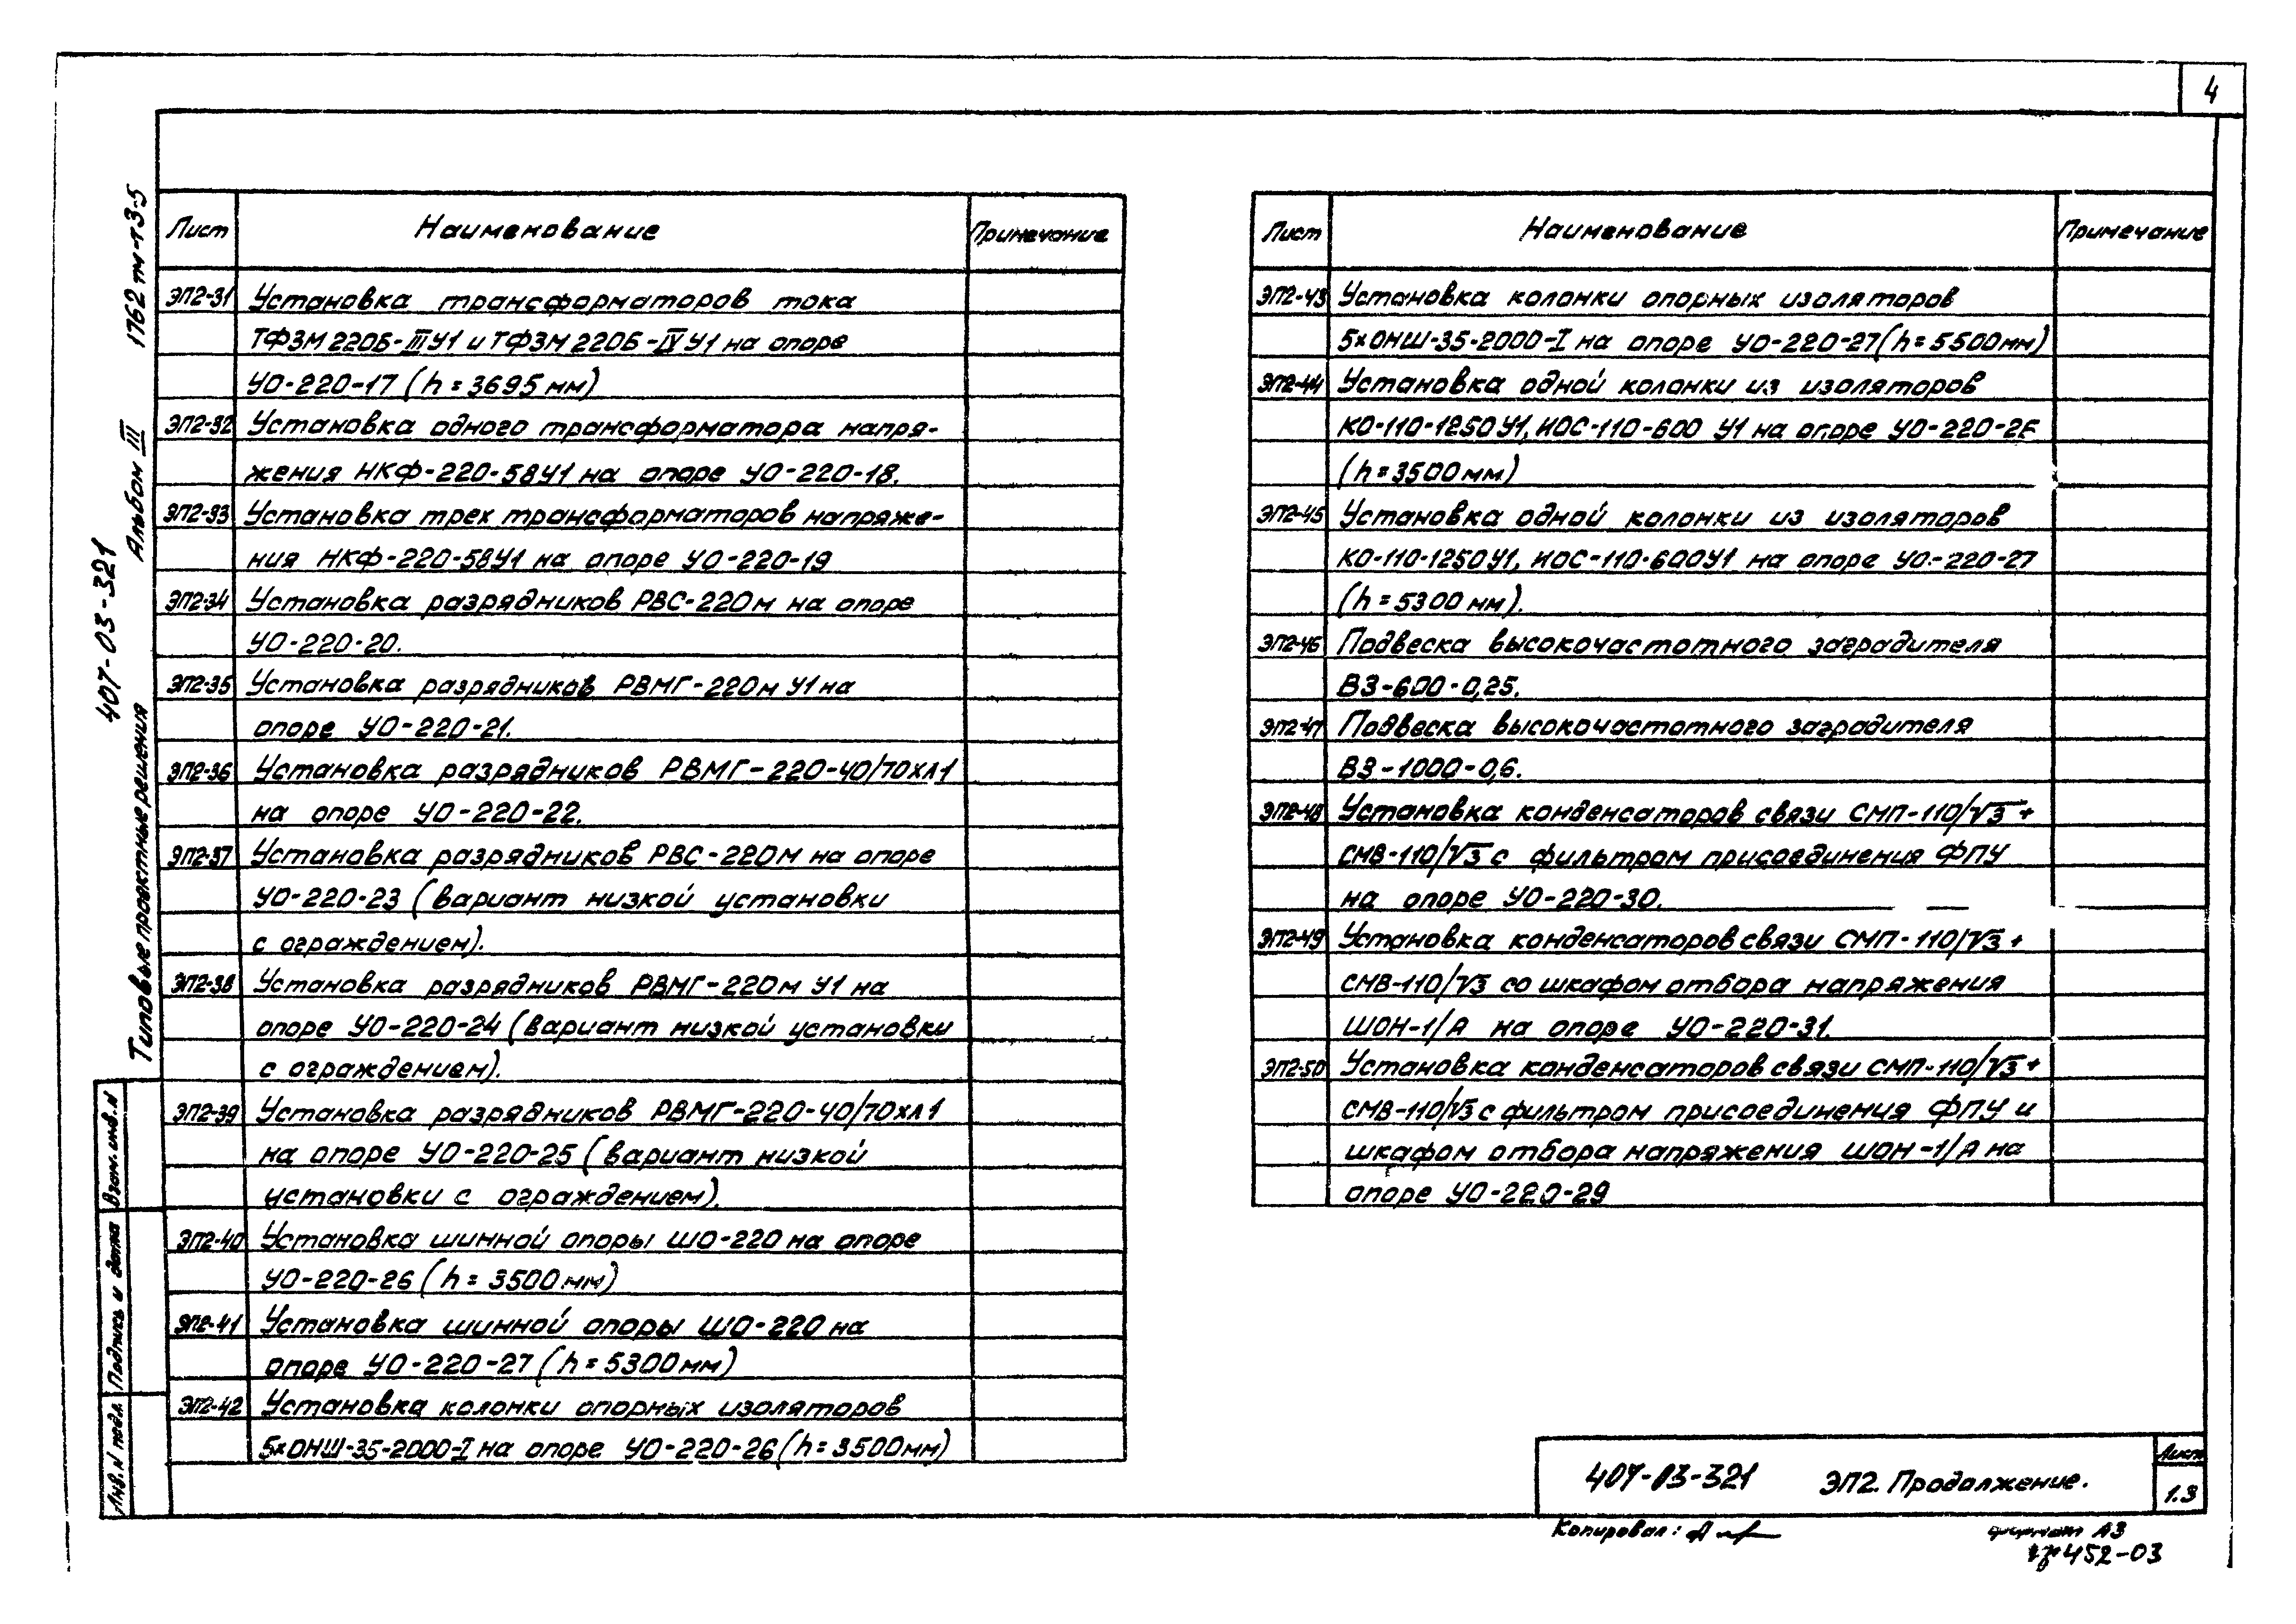 4
1762тм-т3-5
Альбом III
407-03-321
Типовые проектные решения
Взам. инв. N
Подпись и дата
Инв. N подл.
Лист Наименование Примечание
ЭП2-31 Установка трансформаторов тока
ТФЗМ220Б-III У1 и ТФЗМ220Б-IV У1 на опоре
УО-220-17 (h = 3695 мм)
ЭП2-32 Установка одного трансформатора напря-
жения НКФ-220-58У1 на опоре УО-220-18.
ЭП2-33 Установка трех трансформаторов напряже-
ния НКФ-220-58У1 на опоре УО-220-19
ЭП2-34 Установка разрядников РВС-220м на опоре
УО-220-20.
ЭП2-35 Установка разрядников РВМГ-220м У1 на
опоре УО-220-21.
ЭП2-36 Установка разрядников РВМГ-220-40/70ХЛ1
на опоре УО-220-22.
ЭП2-37 Установка разрядников РВС-220м на опоре
УО-220-23 (вариант низкой установки
с ограждением).
ЭП2-38 Установка разрядников РВМГ-220м У1 на
опоре УО-220-24 (вариант низкой установки
с ограждением).
ЭП2-39 Установка разрядников РВМГ-220-40/70ХЛ1
на опоре УО-220-25 (вариант низкой
установки с ограждением).
ЭП2-40 Установка шинной опоры ШО-220 на опоре
УО-220-26 (h = 3500мм)
ЭП2-41 Установка шинной опоры ШО-220 на
опоре УО-220-27 (h = 5300мм)
ЭП2-42 Установка колонки опорных изоляторов
5×ОНШ-35-2000-I на опоре УО-220-26 (h = 3500мм)
Лист Наименование Примечание
ЭП2-43 Установка колонки опорных изоляторов
5×ОНШ-35-2000-I на опоре УО-220-27 (h = 5500мм)
ЭП2-44 Установка одной колонки из изоляторов
КО-110-1250У1, ИОС-110-600 У1 на опоре
(h = 3500мм)
ЭП2-45 Установка одной колонки из изоляторов
КО-110-1250У1, ИОС-110-600У1 на опоре УО-220-27
(h = 5300 мм).
ЭП2-46 Подвеска высокочастотного заградителя
ВЗ-600-0,25.
ЭП2-47 Подвеска высокочастотного заградителя
ВЗ-1000-0,6.
ЭП2-48 Установка конденсаторов связи СМП-110/√3 +
СМВ-110/√3 с фильтром присоединения ФПУ
на опоре УО-220-30.
ЭП2-49 Установка конденсаторов связи СМП-110/√3 +
СМВ-110/√3 со шкафом отбора напряжения
ШОН-1/А на опоре УО-220-31.
ЭП2-50 Установка конденсаторов связи СМП-110/√3 +
СМВ-110/√3 с фильтром присоединения ФПУ и
шкафом отбора напряжения ШОН-1/А на
опоре УО-220-29
407-03-321 ЭП2. Продалжение.
Лист
1.3
Копировал:
формат А3
452-03